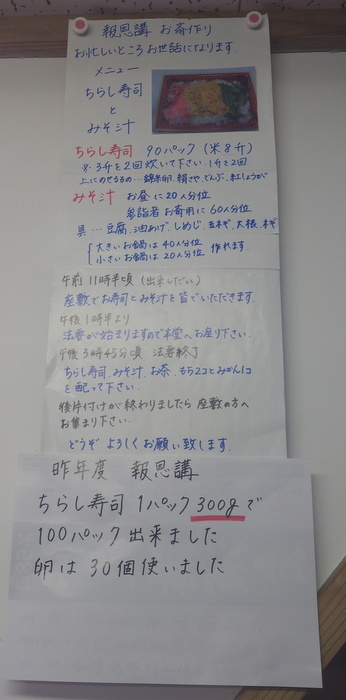 報恩講 お斎作り
お忙しいところお世話になります。
メニュー
ちらし寿司
と
みそ汁
ちらし寿司 90パック (米8升)
※3升を2回炊いて下さい。1升を2回
上にのせるもの…錦糸卵、絹さや、でんぶ、紅しょうが
みそ汁 お昼に20人分位
参詣者お斎用に60人分位
具…豆腐、油あげ、しめじ、玉ネギ、大根、ネギ
大きいお鍋は40人分位
小さいお鍋は20人分位 作れます。
午前11時半頃 (出来しだい)
座敷でお寿司とみそ汁を皆でいただきます。
午後1時半より
法要が始まりますので本堂へお座り下さい。
午後3時45分頃 法要終了
ちらし寿司、みそ汁、お茶、もち2コとみかん1コ
を配って下さい。
後片付けが終わりましたら座敷の方へ
お集まり下さい。
どうぞよろしくお願い致します。
昨年度 報恩講
ちらし寿司1パック300gで
100パック出来ました
卵は30個使いました